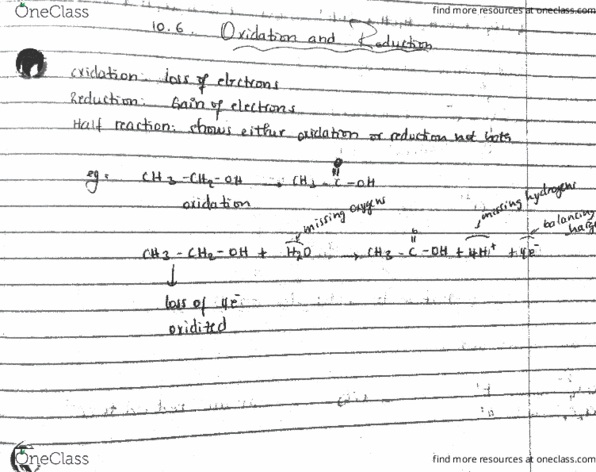 OneClass
find more resources at oneclass.com
10.6. Oxidation and Reduction
oxidation: loss of electrons
Reduction: Gain of electrons
Half reaction: shows either oxidation or reduction not both
eg: CH3-CH2-OH → CH3-C-OH
O
oxidation
missing oxygens
missing hydrogens
balancing
CH3-CH2-OH + H2O → CH3-C-OH + 4H+ + 4e-
O
loss of 4e-
oxidited
OneClass
find more resources at oneclass.com